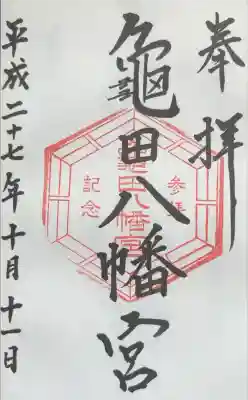 奉拝
亀田八幡宮
参拝
記念
亀田八幡宮
平成二十七年十月十一日